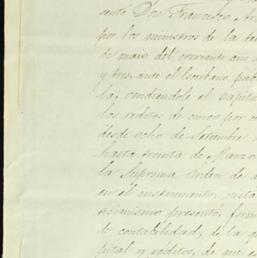 sentó Don Francisco
por los ministros de la
de maio del corriente año
y tres, ante el Escribano
la, cendiendole el Capital
los reditos de cinco por
desde ocho de Setiembre
hasta treinta de Marzo
la Suprema orden de
en el instrumento;
asimismo presentó,
de contabilidad, de la
pital y réditos, de que